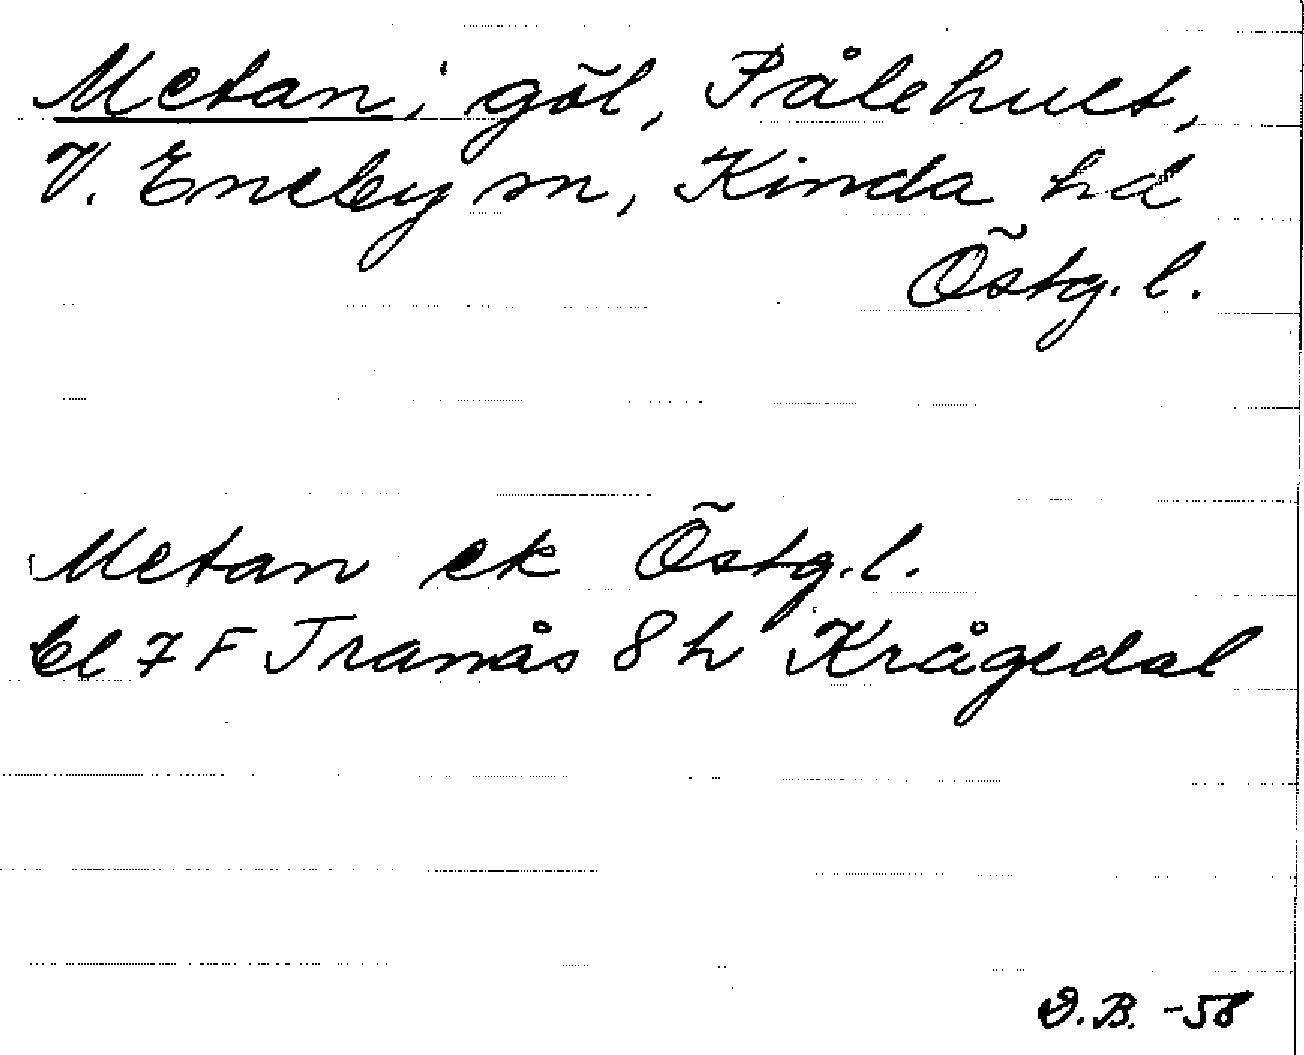 Metan, göl, Pålehult,
V. Eneby sn, Kinda hd
Östg. l.
Metan ek Östg. l.
bl 7 F Tranås 8 h Krågedal
D.B. -58